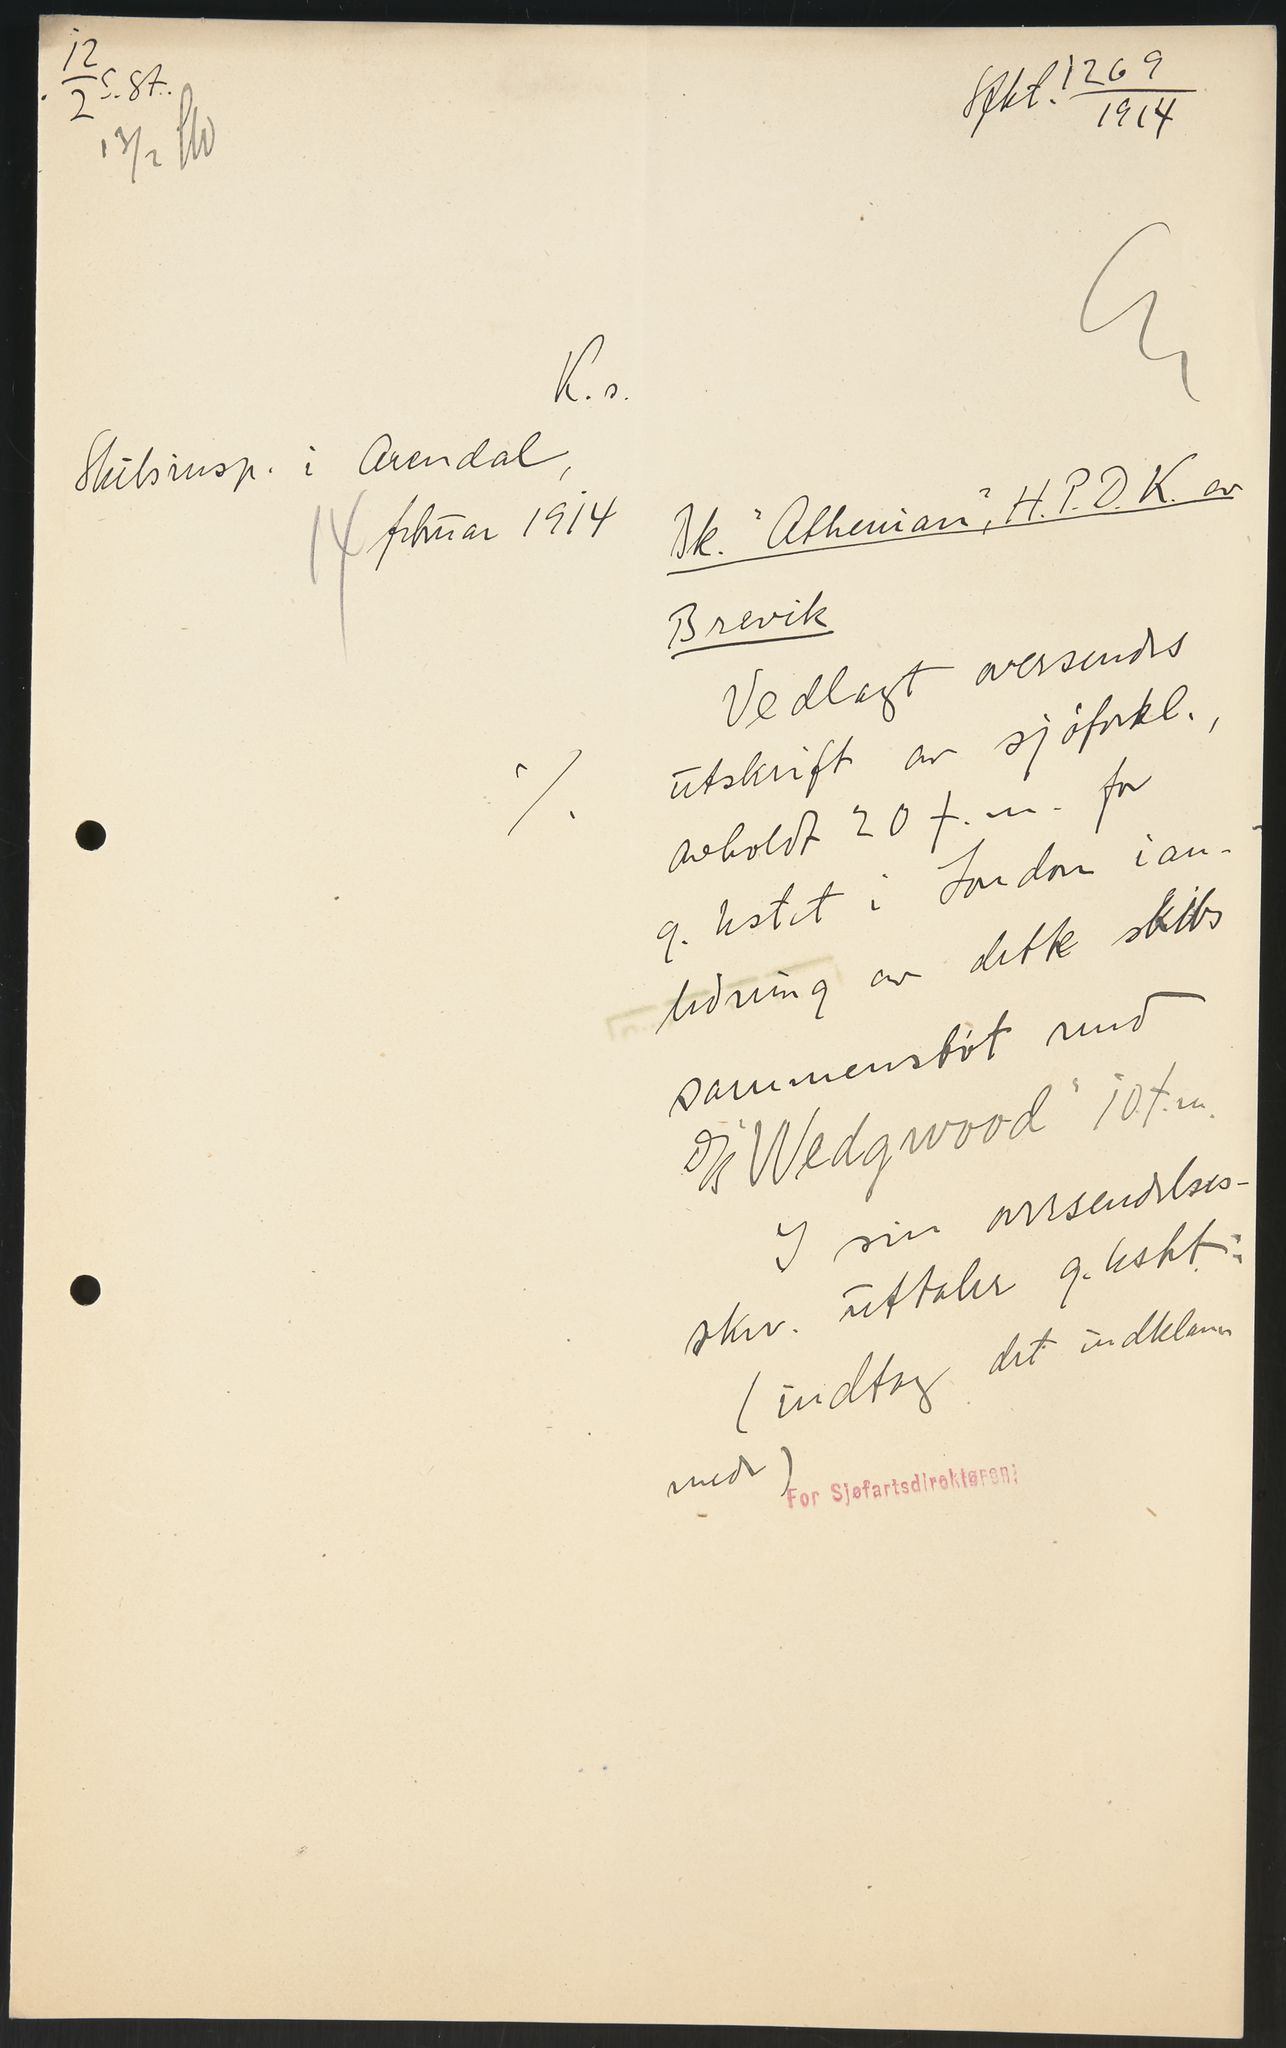 12/2 S.St.
13/2
Sfkt. 1269/1914
K. s.
Skibsinsp. i Arendal,
14 februar 1914
Bk. "Athenian", H.P.D.K. av
Brevik
Vedlagt oversendes
utskrift av sjöforkl.,
avholdt 20 f.m. for
g.kstet i London i an-
ledning av dette skibs
sammenstöt med
D/S "Wedgwood" 10 f.m.
I sin oversendelses-
skr. uttaler g.kstet:
(indtag det indklam
mede)
For Sjøfartsdirektøren: